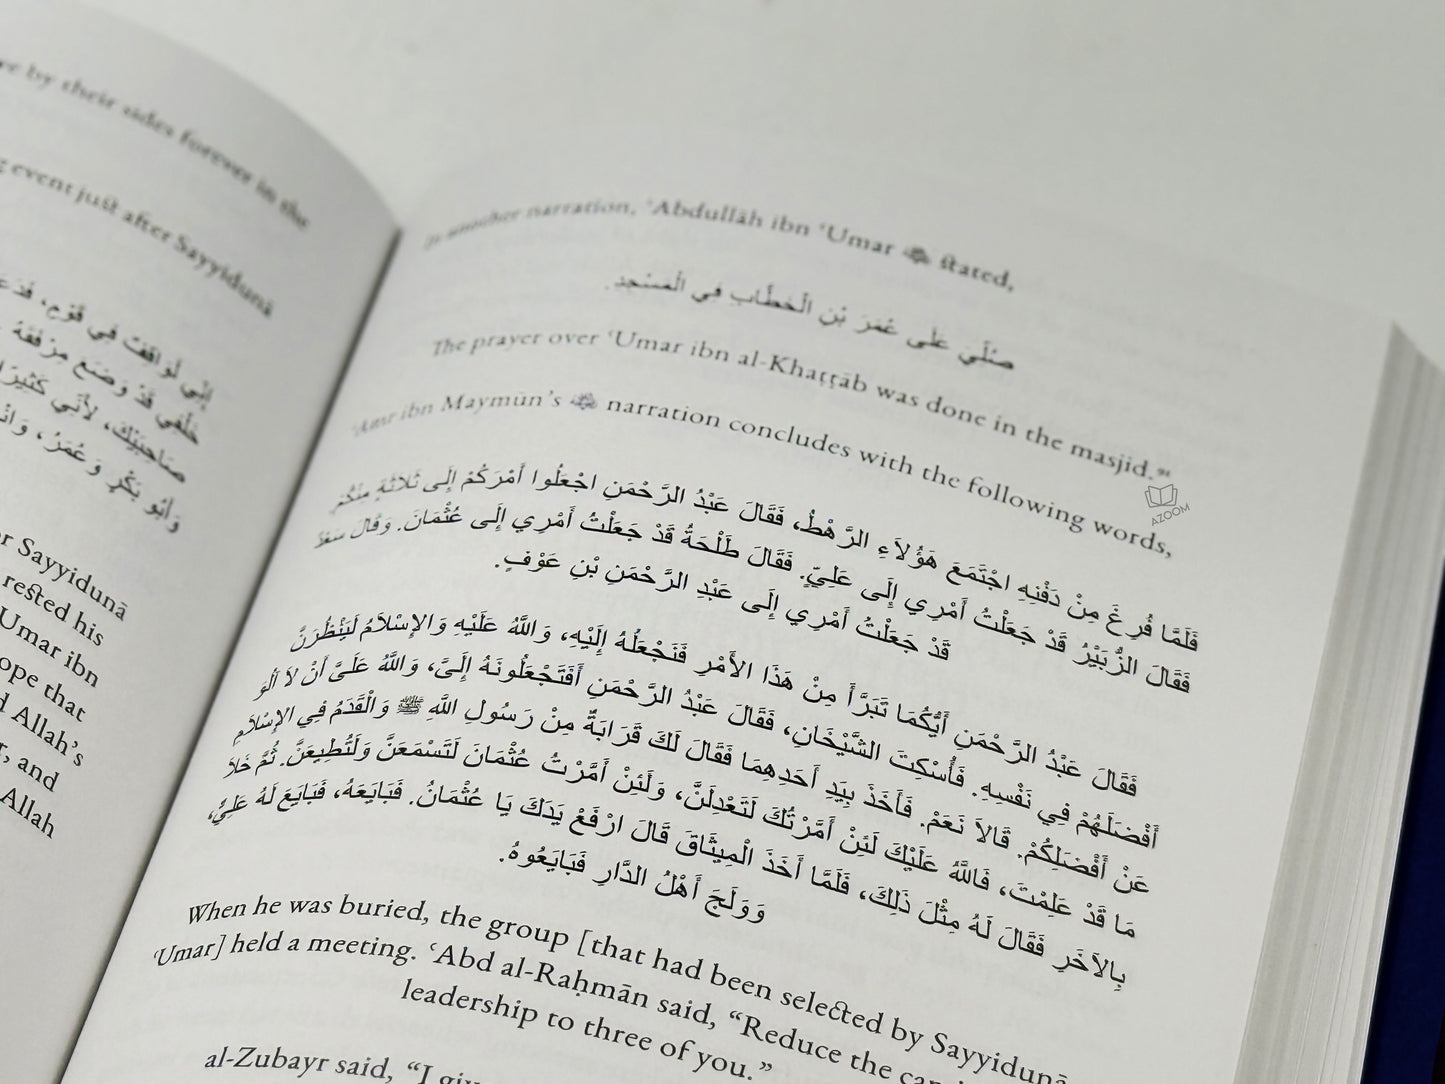 by their sides forever in the
event just after Sayyidunā
إِنِّي لَوَاقِفٌ فِي قَوْمٍ،
خَلْفِي قَدْ وَضَعَ مِرْفَقَهُ
صَاحِبَيْكَ، لأَنِّي كَثِيرًا
وَأَبُو بَكْرٍ وَعُمَرُ،
Sayyidunā
rested his
Umar ibn
ope that
Allah’s
and
Allah
In another narration, ʿAbdullāh ibn ʿUmar stated,
صُلِّيَ عَلَى عُمَرَ بْنِ الْخَطَّابِ فِي الْمَسْجِدِ.
The prayer over ʿUmar ibn al-Khaṭṭāb was done in the masjid.
ʿAmr ibn Maymūn’s narration concludes with the following words,
فَلَمَّا فُرِغَ مِنْ دَفْنِهِ اجْتَمَعَ هَؤُلاَءِ الرَّهْطُ، فَقَالَ عَبْدُ الرَّحْمَنِ اجْعَلُوا أَمْرَكُمْ إِلَى ثَلاَثَةٍ مِنْكُمْ.
فَقَالَ الزُّبَيْرُ قَدْ جَعَلْتُ أَمْرِي إِلَى عَلِيٍّ. فَقَالَ طَلْحَةُ قَدْ جَعَلْتُ أَمْرِي إِلَى عُثْمَانَ. وَقَالَ سَعْدٌ
قَدْ جَعَلْتُ أَمْرِي إِلَى عَبْدِ الرَّحْمَنِ بْنِ عَوْفٍ.
فَقَالَ عَبْدُ الرَّحْمَنِ أَيُّكُمَا تَبَرَّأَ مِنْ هَذَا الأَمْرِ فَنَجْعَلُهُ إِلَيْهِ، وَاللَّهُ عَلَيْهِ وَالإِسْلاَمُ لَيَنْظُرَنَّ
أَفْضَلَهُمْ فِي نَفْسِهِ. فَأُسْكِتَ الشَّيْخَانِ، فَقَالَ عَبْدُ الرَّحْمَنِ أَفَتَجْعَلُونَهُ إِلَىَّ، وَاللَّهُ عَلَىَّ أَنْ لاَ آلُوَ
عَنْ أَفْضَلِكُمْ. قَالاَ نَعَمْ. فَأَخَذَ بِيَدِ أَحَدِهِمَا فَقَالَ لَكَ قَرَابَةٌ مِنْ رَسُولِ اللَّهِ ﷺ وَالْقَدَمُ فِي الإِسْلاَمِ
مَا قَدْ عَلِمْتَ، فَاللَّهُ عَلَيْكَ لَئِنْ أَمَّرْتُكَ لَتَعْدِلَنَّ، وَلَئِنْ أَمَّرْتُ عُثْمَانَ لَتَسْمَعَنَّ وَلَتُطِيعَنَّ. ثُمَّ خَلاَ
بِالآخَرِ فَقَالَ لَهُ مِثْلَ ذَلِكَ، فَلَمَّا أَخَذَ الْمِيثَاقَ قَالَ ارْفَعْ يَدَكَ يَا عُثْمَانُ. فَبَايَعَهُ، فَبَايَعَ لَهُ عَلِيٌّ،
وَوَلَجَ أَهْلُ الدَّارِ فَبَايَعُوهُ.
When he was buried, the group [that had been selected by Sayyidunā
ʿUmar] held a meeting. ʿAbd al-Raḥmān said, “Reduce the
leadership to three of you.”
al-Zubayr said, “I
AZOOM